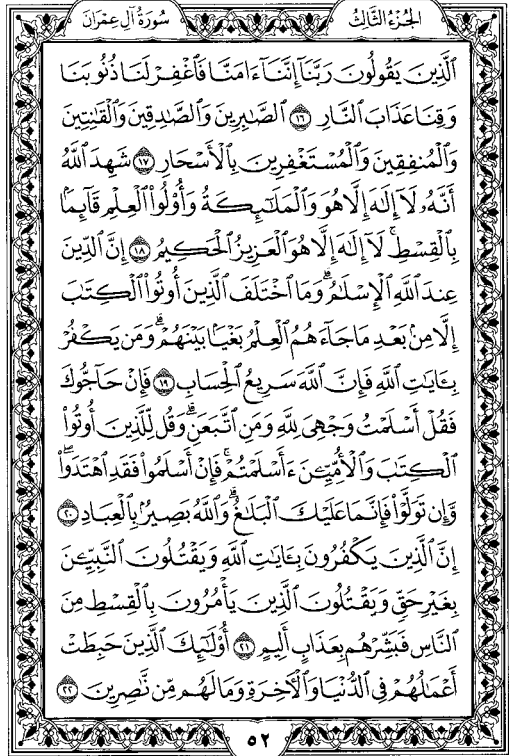 الجزء الثالث سورة آل عمران
ٱلَّذِينَ يَقُولُونَ رَبَّنَآ إِنَّنَآ ءَامَنَّا فَٱغْفِرْ لَنَا ذُنُوبَنَا
وَقِنَا عَذَابَ ٱلنَّارِ ١٦ ٱلصَّٰبِرِينَ وَٱلصَّٰدِقِينَ وَٱلْقَٰنِتِينَ
وَٱلْمُنفِقِينَ وَٱلْمُسْتَغْفِرِينَ بِٱلْأَسْحَارِ ١٧ شَهِدَ ٱللَّهُ
أَنَّهُۥ لَآ إِلَٰهَ إِلَّا هُوَ وَٱلْمَلَٰٓئِكَةُ وَأُو۟لُوا۟ ٱلْعِلْمِ قَآئِمًۢا
بِٱلْقِسْطِ ۚ لَآ إِلَٰهَ إِلَّا هُوَ ٱلْعَزِيزُ ٱلْحَكِيمُ ١٨ إِنَّ ٱلدِّينَ
عِندَ ٱللَّهِ ٱلْإِسْلَٰمُ ۗ وَمَا ٱخْتَلَفَ ٱلَّذِينَ أُوتُوا۟ ٱلْكِتَٰبَ
إِلَّا مِنۢ بَعْدِ مَا جَآءَهُمُ ٱلْعِلْمُ بَغْيًۢا بَيْنَهُمْ ۗ وَمَن يَكْفُرْ
بِـَٔايَٰتِ ٱللَّهِ فَإِنَّ ٱللَّهَ سَرِيعُ ٱلْحِسَابِ ١٩ فَإِنْ حَآجُّوكَ
فَقُلْ أَسْلَمْتُ وَجْهِىَ لِلَّهِ وَمَنِ ٱتَّبَعَنِ ۗ وَقُل لِّلَّذِينَ أُوتُوا۟
ٱلْكِتَٰبَ وَٱلْأُمِّيِّـۧنَ ءَأَسْلَمْتُمْ ۚ فَإِنْ أَسْلَمُوا۟ فَقَدِ ٱهْتَدَوا۟ ۖ
وَّإِن تَوَلَّوْا۟ فَإِنَّمَا عَلَيْكَ ٱلْبَلَٰغُ ۗ وَٱللَّهُ بَصِيرٌۢ بِٱلْعِبَادِ ٢٠
إِنَّ ٱلَّذِينَ يَكْفُرُونَ بِـَٔايَٰتِ ٱللَّهِ وَيَقْتُلُونَ ٱلنَّبِيِّـۧنَ
بِغَيْرِ حَقٍّ وَيَقْتُلُونَ ٱلَّذِينَ يَأْمُرُونَ بِٱلْقِسْطِ مِنَ
ٱلنَّاسِ فَبَشِّرْهُم بِعَذَابٍ أَلِيمٍ ٢١ أُو۟لَٰٓئِكَ ٱلَّذِينَ حَبِطَتْ
أَعْمَٰلُهُمْ فِى ٱلدُّنْيَا وَٱلْءَاخِرَةِ وَمَا لَهُم مِّن نَّٰصِرِينَ ٢٢
٥٢